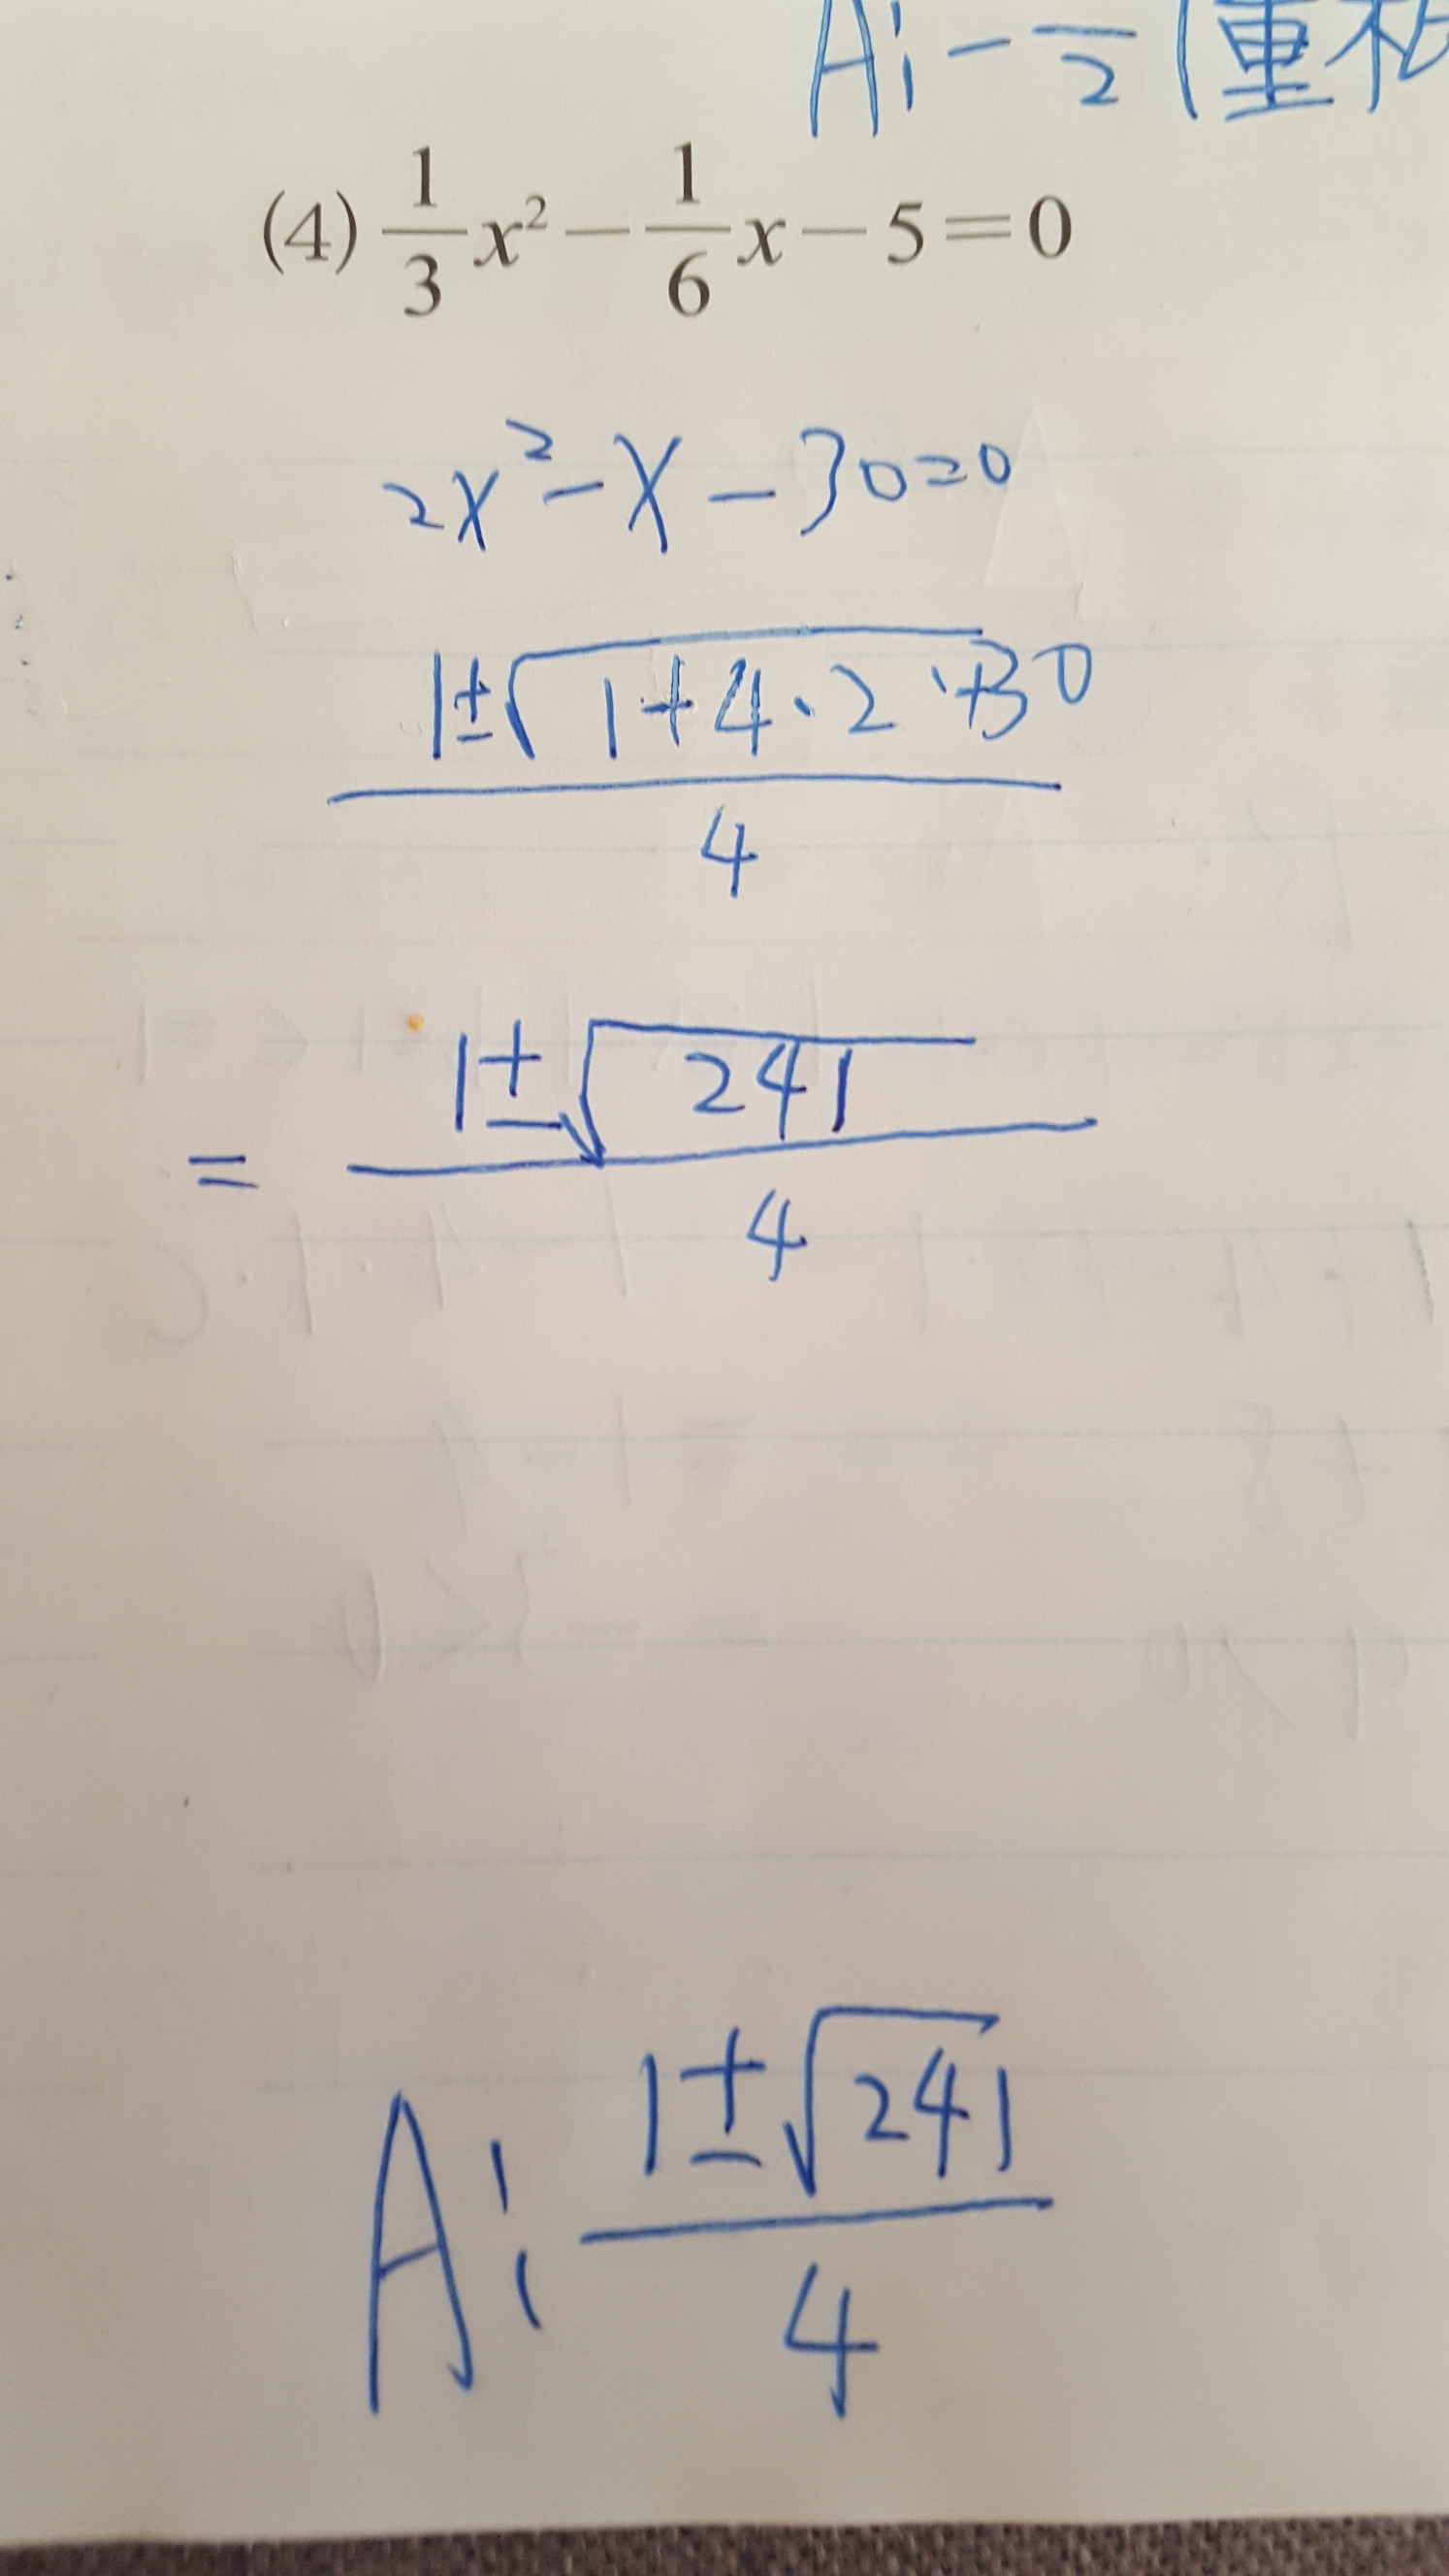 A: - /2 (重根
(4) 1/3 x² - 1/6 x - 5 = 0
2x² - x - 30 = 0
1±√1+4·2·+30 / 4
= 1±√241 / 4
A: 1±√241 / 4